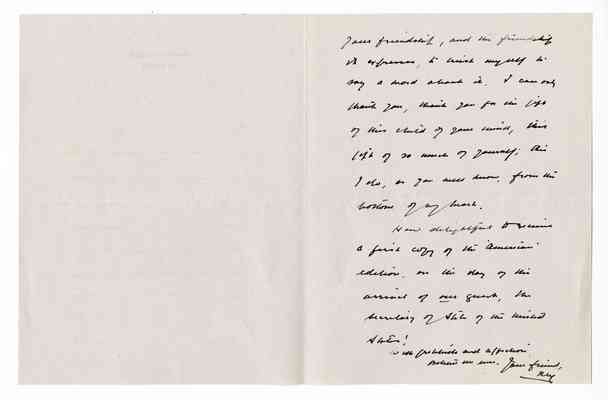 Your friendship, and the friendship
it expresses, to trust myself to
say a word about it. I can only
thank you, thank you for the gift
of this child of your mind, this
gift of so much of yourself; this
I do, as you well know, from the
bottom of my heart.
How delightful to receive
a first copy of the American
edition on the day of the
arrival of our guest, the
Secretary of State of the United
States!
With gratitude and affection
Your friend,